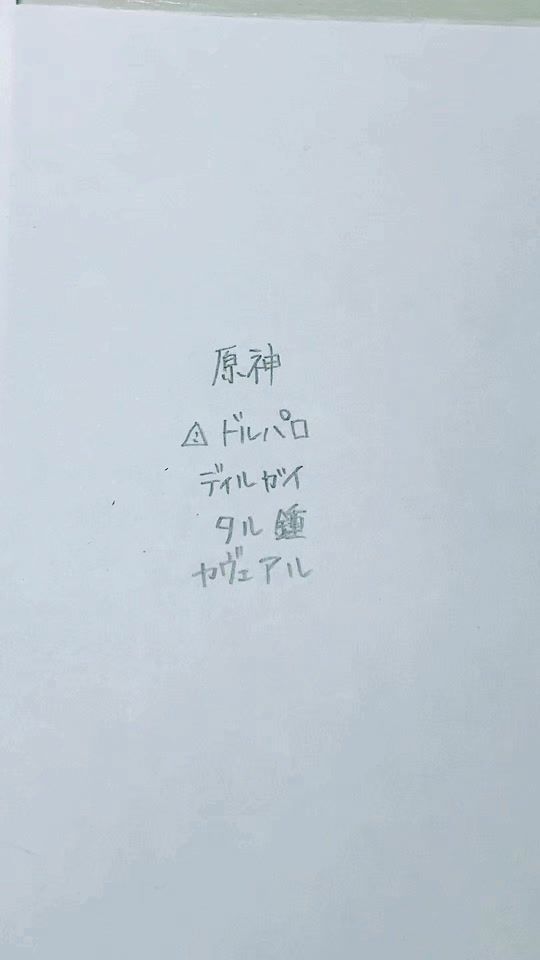 原神
⚠ ドルパロ
ディルガイ
タル鍾
カヴェアル